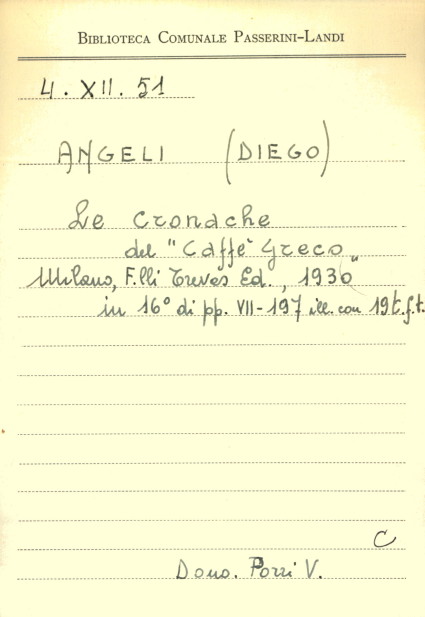 BIBLIOTECA COMUNALE PASSERINI-LANDI
4. XII. 51
ANGELI (DIEGO)
Le Cronache
del "Caffè Greco"
Milano, F.lli Treves Ed., 1930
in 16° di pp. VII-197 ill. con 19 t.f.t.
C
Dono. Porri V.